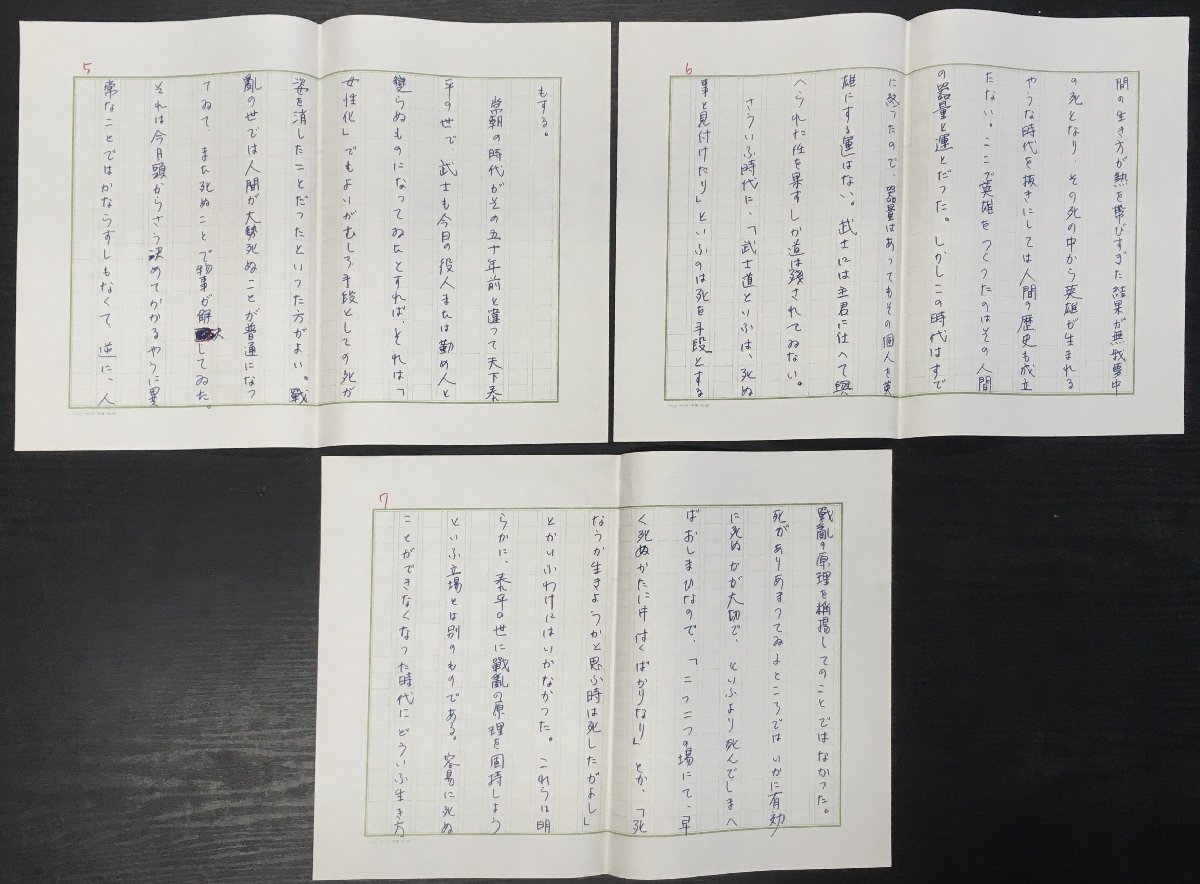 5
もする。
常朝の時代がその五十年前と違つて天下泰
平の世で、武士も今日の役人または勤め人と
變らぬものになつてゐたとすれば、それは「
女性化」でもよいがむしろ手段としての死が
姿を消したことだつたといつた方がよい。戰
亂の世では人間が大勢死ぬことが普通になつ
てゐて、また死ぬことで物事が解決してゐた。
それは今日頭からさう決めてかかるやうに異
常なことではかならずしもなくて、逆に、人
6
間の生き方が熱を帶びすぎた結果が無我夢中
の死となり、その死の中から英雄が生まれる
やうな時代を抜きにしては人間の歴史も成立
たない。ここで英雄をつくつたのはその人間
の器量と運とだつた。しかしこの時代はすで
に終つたので、器量はあつてもその個人を英
雄にする運はない。武士には主君に仕へて與
へられた任を果すしか道は殘されてゐない。
さういふ時代に、「武士道といふは、死ぬ
事と見付けたり」といふのは死を手段とする
7
戰亂の原理を稱揚してのことではなかつた。
死がありあまつてゐるところではいかに有効
に死ぬかが大切で、といふより死んでしまへ
ばおしまひなので、「二つ二つの場にて、早
く死ぬかたに片付くばかりなり」とか、「死
なうか生きようかと思ふ時は死したがよし」
とかいふわけにはいかなかつた。これらは明
らかに、泰平の世に戰亂の原理を固持しよう
といふ立場とは別のものである。容易に死ぬ
ことができなくなつた時代にどういふ生き方